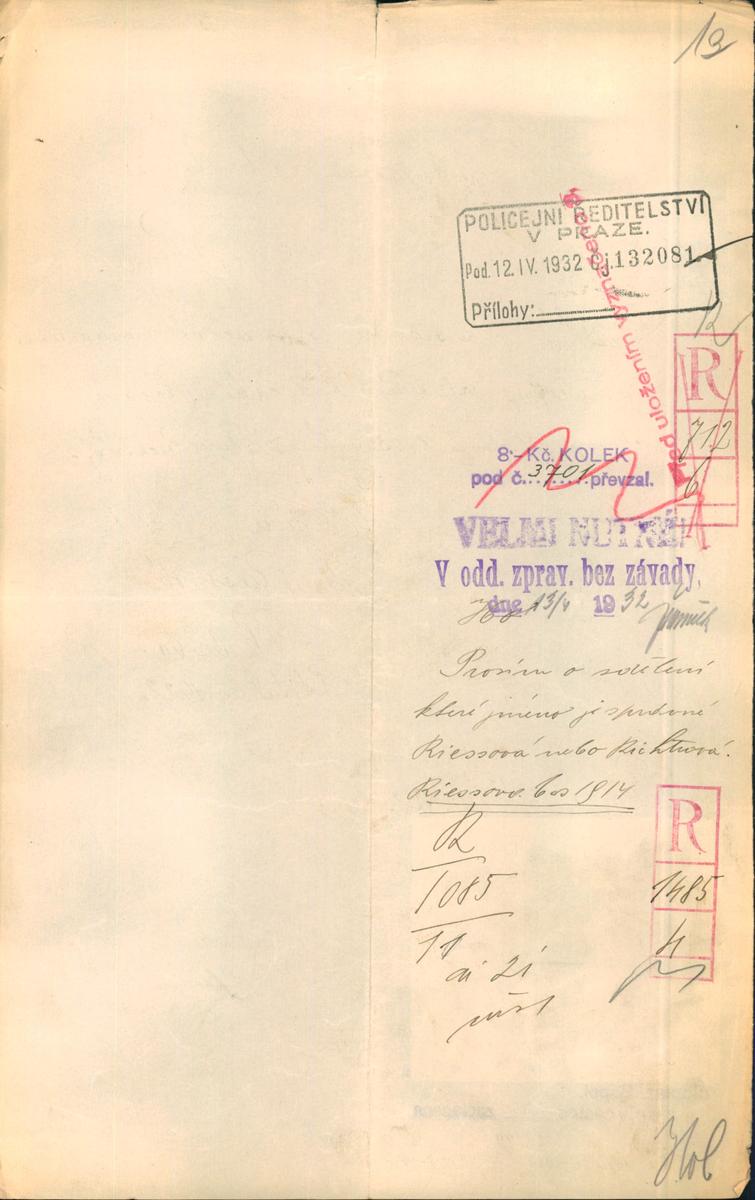 13
POLICEJNÍ ŘEDITELSTVÍ
V PRAZE.
Pod. 12. IV. 1932 Čj. 132081.
Přílohy:
Před uložením vyznačeno
R
712
6
8·- Kč. KOLEK
pod č. 3701 převzal.
VELMI NUTNÉ!
V odd. zprav. bez závady,
dne 13/4 1932
Prosím o sdělení
které jméno je správné
Riessová nebo Richtrová.
Riessová. bos 1914
R
1085
11
R
1485
4
ai 21
Hol